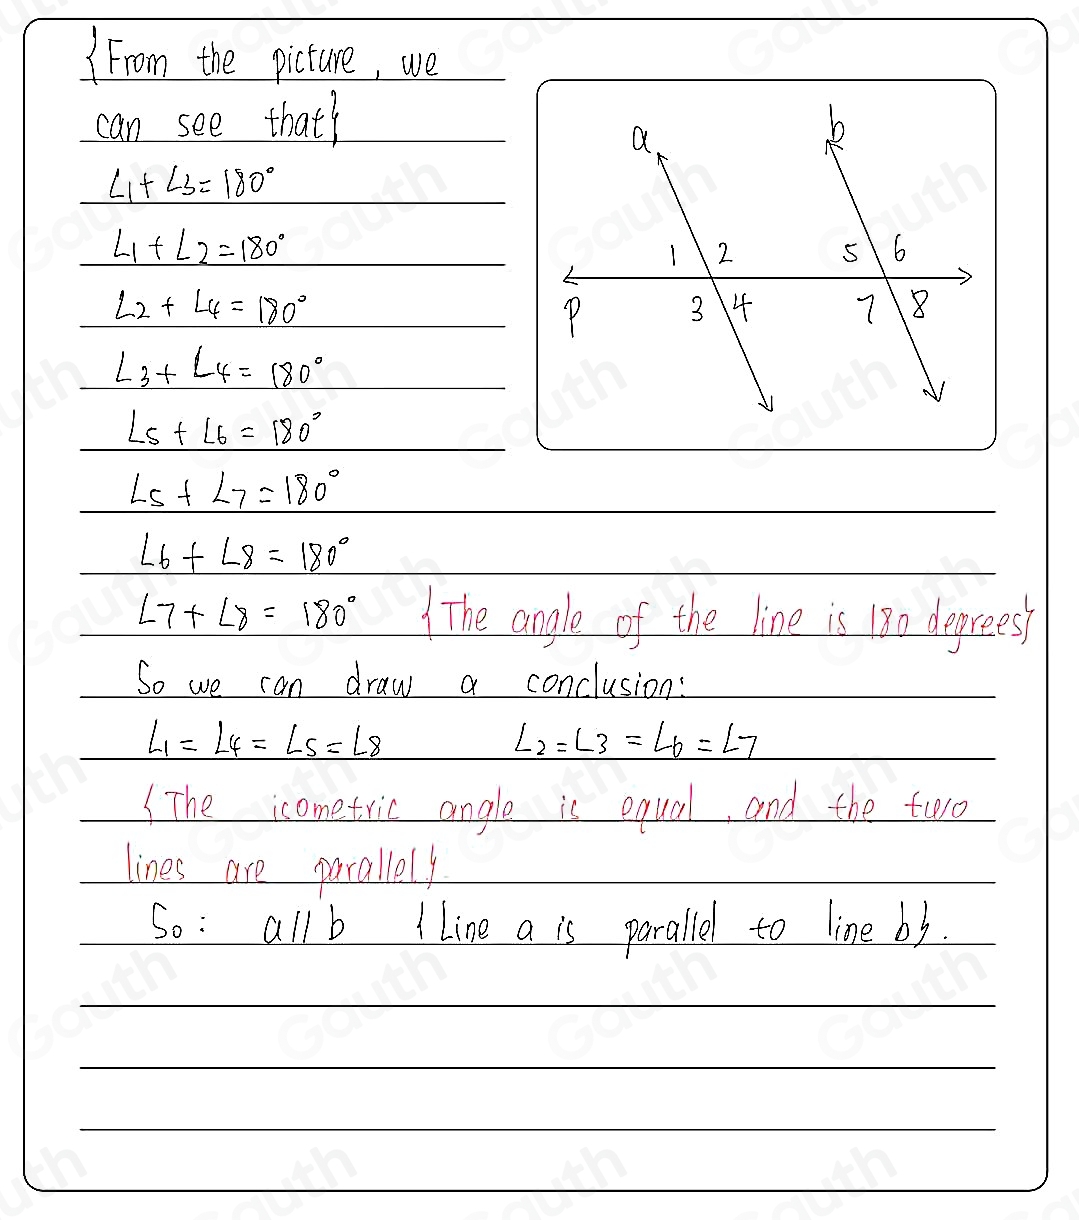 {From the picture, we
can see that}
∠1 + ∠3 = 180°
∠1 + ∠2 = 180°
∠2 + ∠4 = 180°
∠3 + ∠4 = 180°
∠5 + ∠6 = 180°
∠5 + ∠7 = 180°
∠6 + ∠8 = 180°
∠7 + ∠8 = 180° {The angle of the line is 180 degrees}
So we can draw a conclusion:
∠1 = ∠4 = ∠5 = ∠8 ∠2 = ∠3 = ∠6 = ∠7
{The isometric angle is equal, and the two
lines are parallel}.
So: a // b {Line a is parallel to line b}.
a b
1 2 5 6
p 3 4 7 8
Gauth